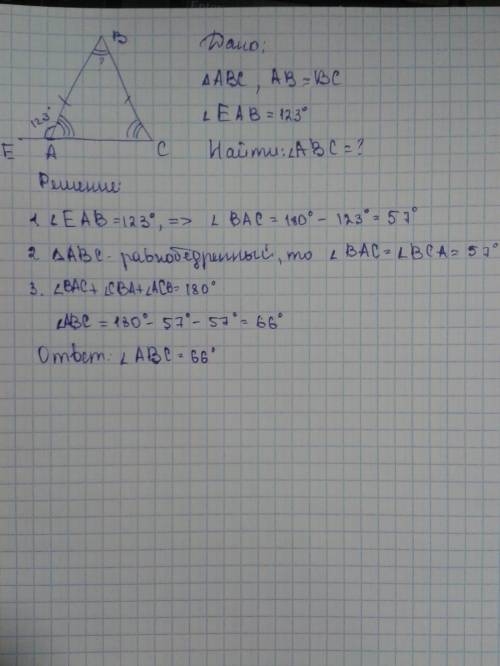 B
?
123°
E
A
C
Дано:
△ABC, AB=BC
∠EAB=123°
Найти: ∠ABC=?
Решение:
1. ∠EAB=123°, => ∠BAC=180°-123°=57°
2 △ABC- равнобедренный, то ∠BAC=∠BCA=57°
3. ∠BAC+∠CBA+∠ACB=180°
∠ABC=180°-57°-57°=66°
Ответ: ∠ABC=66°